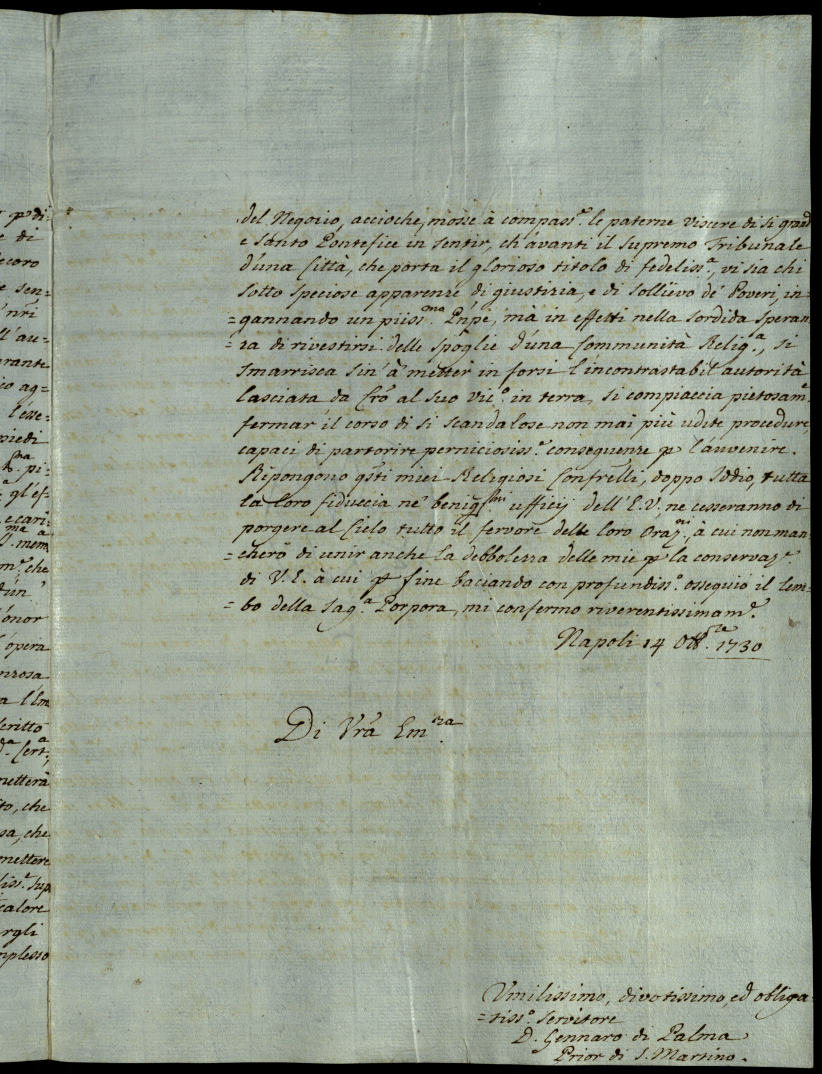 del Negozio, accioche, mosse à compass.e le paterne viscere di si grand
e Santo Pontefice in sentir, ch'avanti il Supremo Tribunale
d'una Città, che porta il glorioso titolo di fedeliss.a, vi sia chi
sotto speciose apparenze di giustizia, e di sollievo de' Poveri, in=
=gannando un piiss.mo Pn̄pe, mà in effetti nella sordida speran
=za di rivestirsi delle spoglie d'una Communità Relig.a, si
smarrisca sin' à metter in forsi l'incontrastabil autorità
lasciata da Crō al suo Vic.o in terra, si compiaccia pietosam.e
fermar il corso di si scandalose non mai più udite procedure,
capaci di partorire perniciosiss.e conseguenze p l'auvenire.
Ripongono q̄sti miei Religiosi Confrelli, doppo Iddio, tutta
la loro fiduccia ne' benig.mi ufficij dell'E.V. ne cesseranno di
porgere al Cielo tutto il fervore delle loro Oraz.ni, à cui non man
=cherò di unir anche la debbolezza delle mie p la conservaz.e
di V.E. à cui p fine baciando con profundiss.o ossequio il lem=
=bo della Sag.a Porpora, mi confermo riverentissimam.e
Napoli 14 Ott.re 1730
Di Vrā Em.za
Umilissimo, divotissimo, ed obliga=
=tiss.o Servitore
D. Gennaro di Palma
Prior di S. Martino.